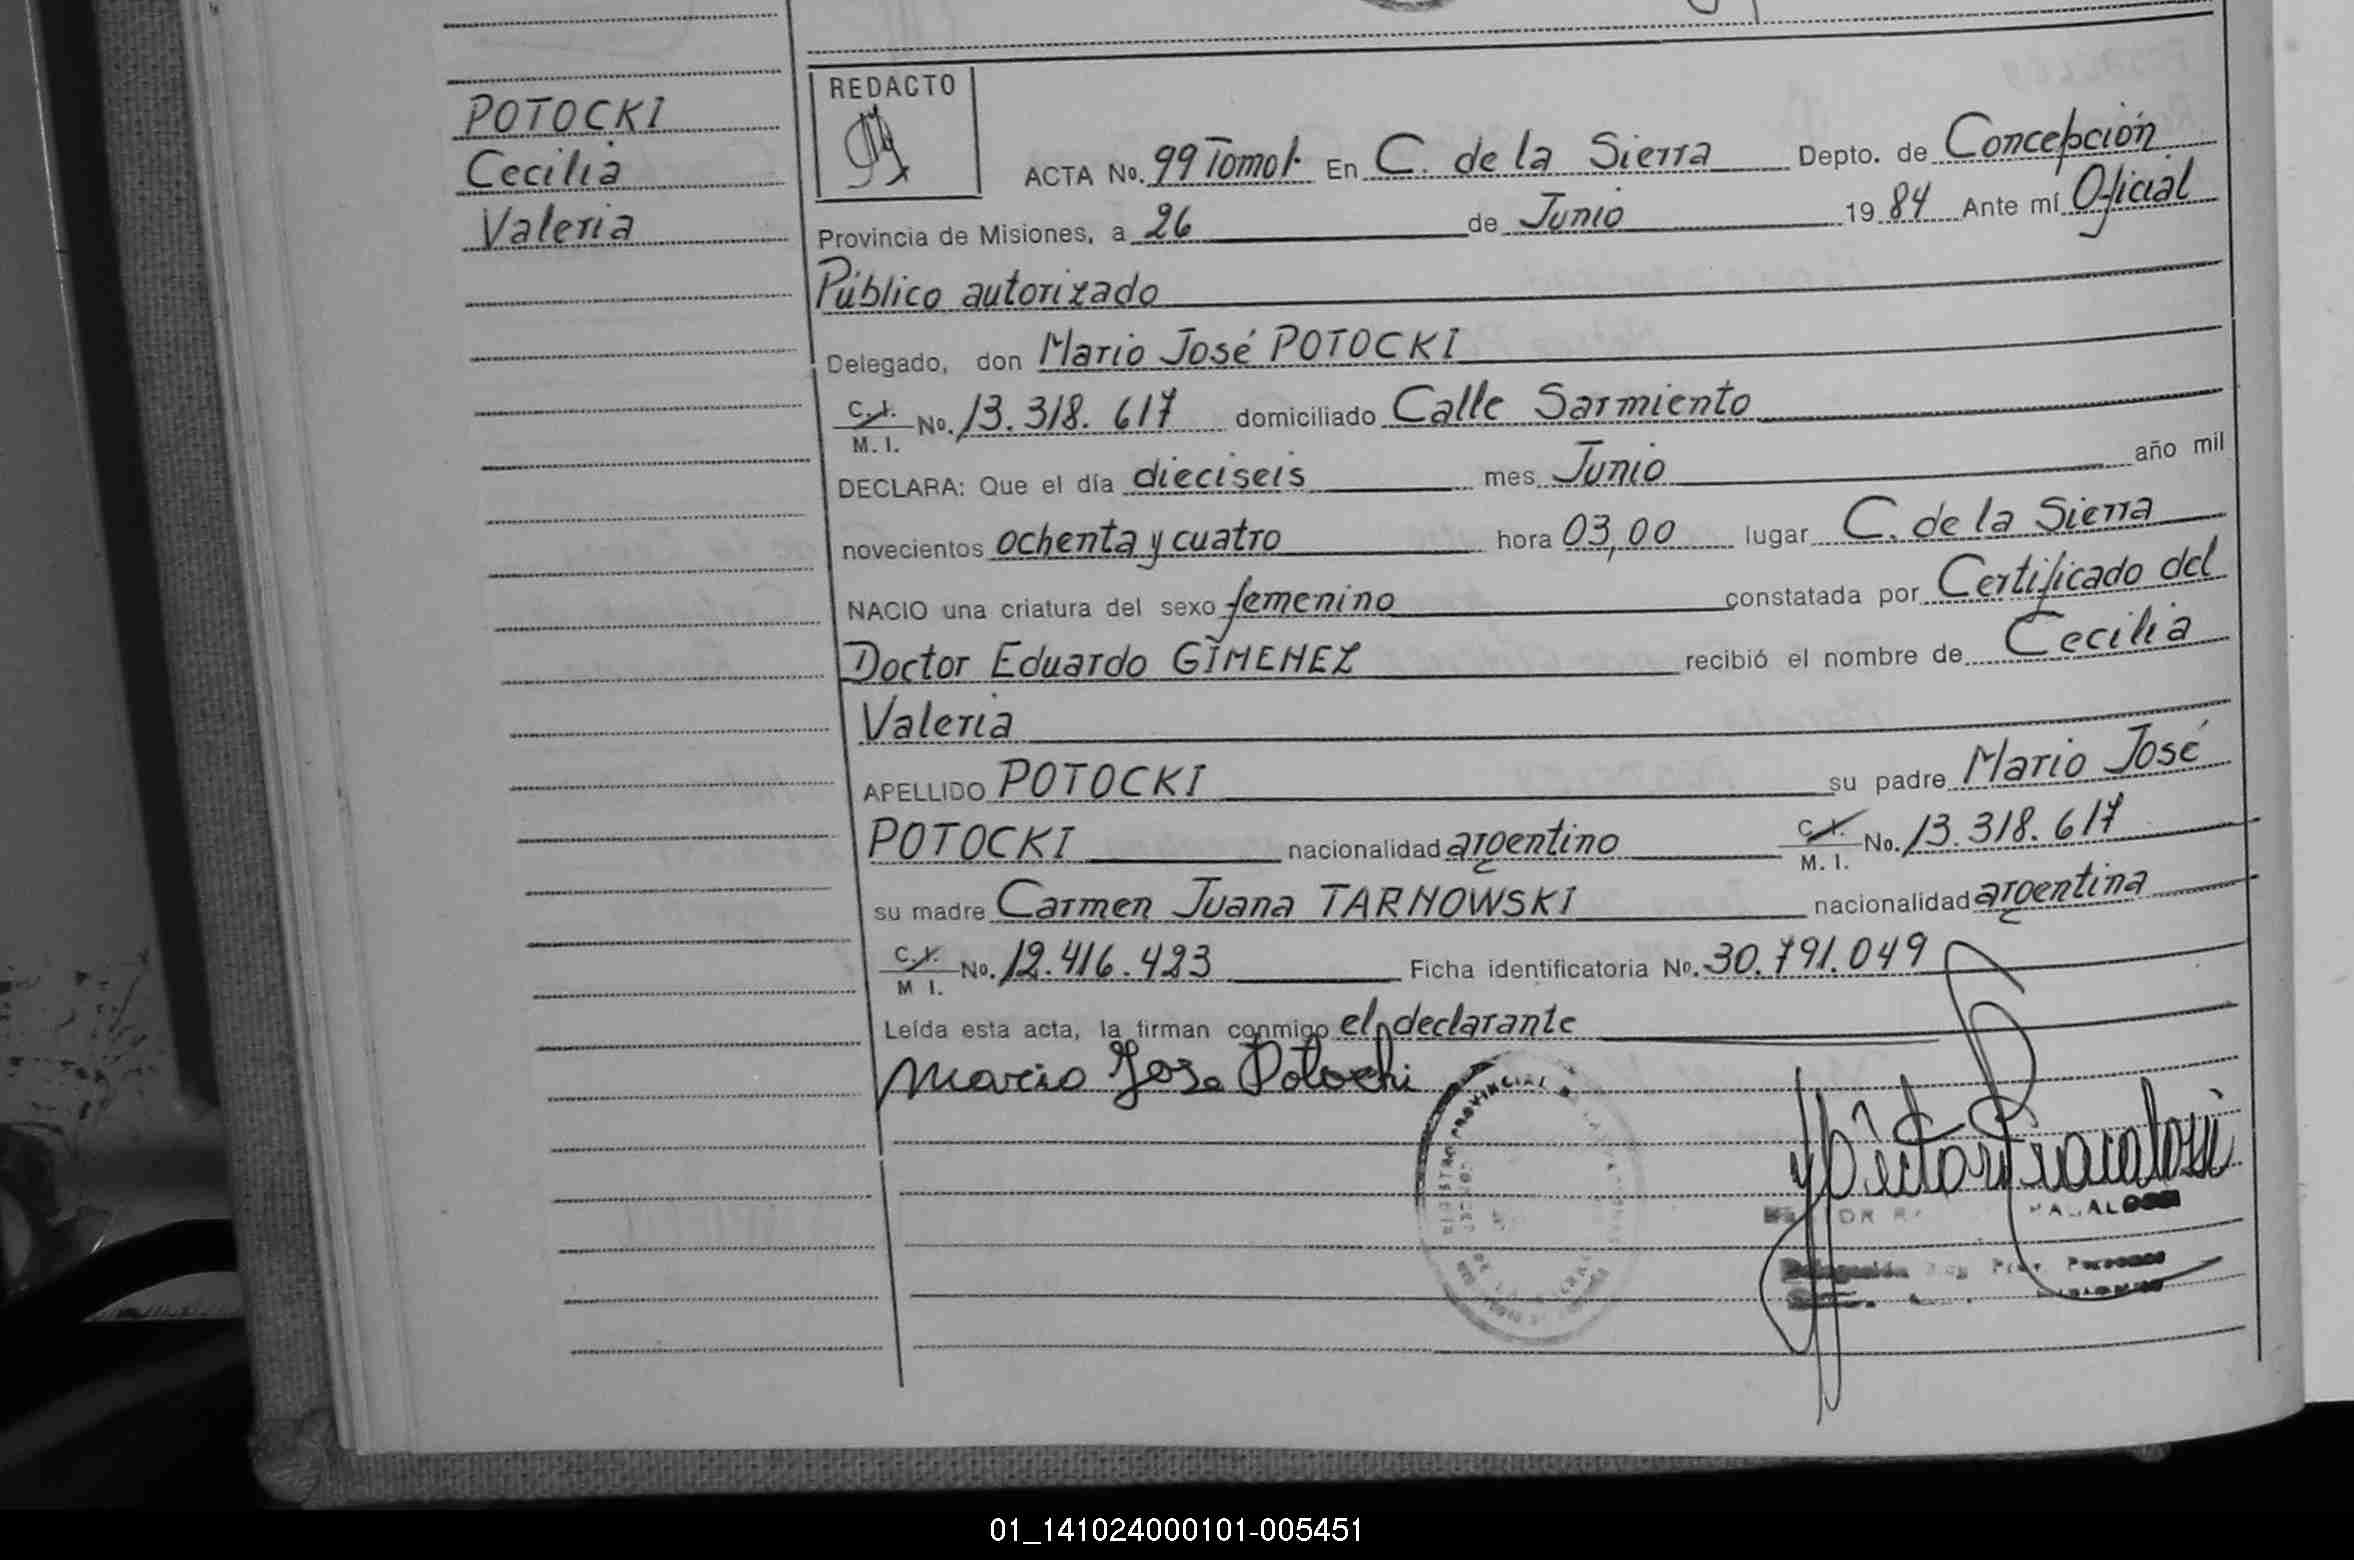 POTOCKI
Cecilia
Valeria
REDACTO
ACTA No. 99 Tomo I. En C. de la Sierra Depto. de Concepción
Provincia de Misiones, a 26 de Junio 1984 Ante mí Oficial
Público autorizado
Delegado, don Mario José POTOCKI
C.I. M.I. No. 13.318.617 domiciliado Calle Sarmiento
DECLARA: Que el día dieciseis mes Junio año mil
novecientos ochenta y cuatro hora 03,00 lugar C. de la Sierra
NACIO una criatura del sexo femenino constatada por Certificado del
Doctor Eduardo GIMENEZ recibió el nombre de Cecilia
Valeria
APELLIDO POTOCKI su padre Mario José
POTOCKI nacionalidad argentino C.I. M.I. No. 13.318.617
su madre Carmen Juana TARNOWSKI nacionalidad argentina
C.I. M I. No. 12.416.423 Ficha identificatoria No. 30.791.049
Leída esta acta, la firman conmigo el declarante
Mario Jose Potocki
PROVINCIAL
01_141024000101-005451